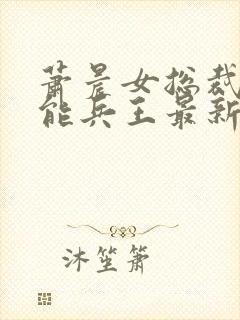 萧晨女总裁
能兵王最新
沐笙箫